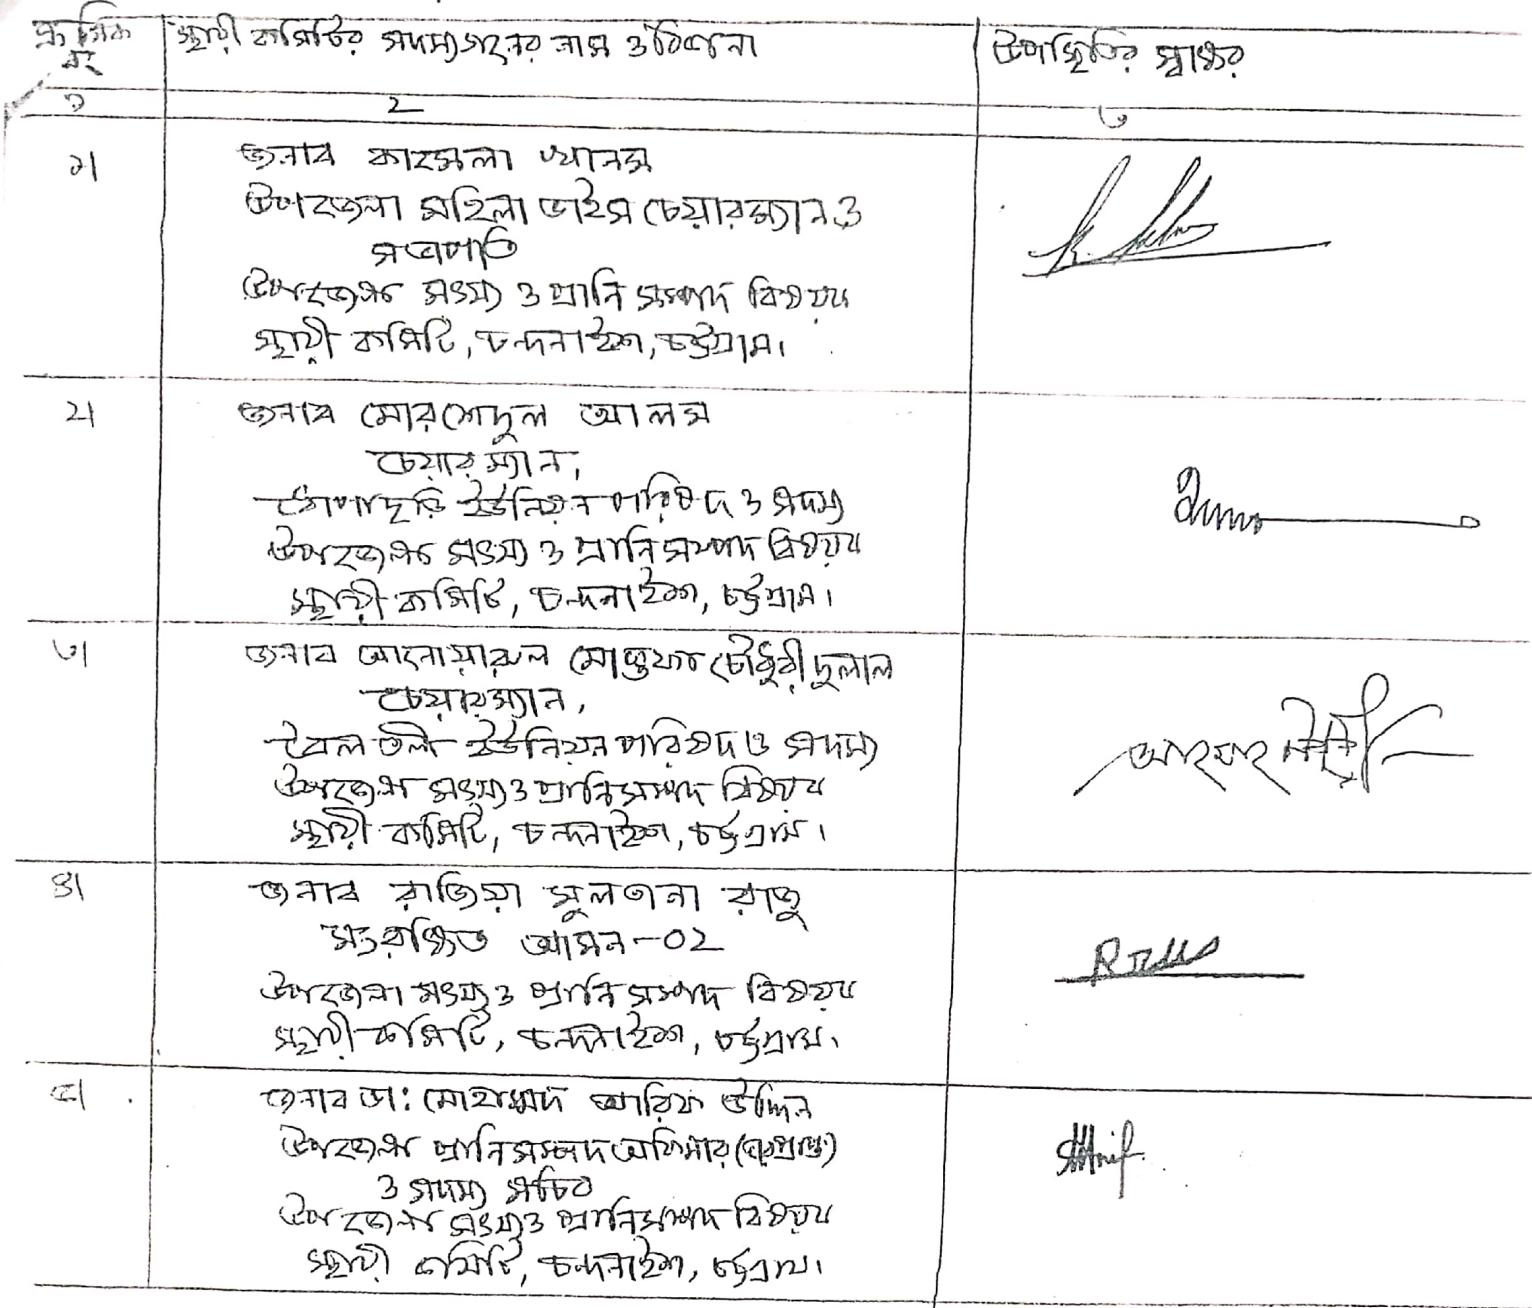 ক্রমিক নং স্থায়ী কমিটির সদস্যগনের নাম ও ঠিকানা উপস্থিতির স্বাক্ষর
১ ২ ৩
১। জনাব কামেলা খানম
উপজেলা মহিলা ভাইস চেয়ারম্যান ও
সভাপতি
উপজেলা মৎস্য ও প্রানি সম্পদ বিষয়ক
স্থায়ী কমিটি, চন্দনাইশ, চট্টগ্রাম।
২। জনাব মোরশেদুল আলম
চেয়ারম্যান,
ধোপাছড়ি ইউনিয়ন পরিষদ ও সদস্য
উপজেলা মৎস্য ও প্রানি সম্পদ বিষয়ক
স্থায়ী কমিটি, চন্দনাইশ, চট্টগ্রাম।
৩। জনাব আনোয়ারুল মোস্তফা চৌধুরী দুলাল
চেয়ারম্যান,
বৈলতলী ইউনিয়ন পরিষদ ও সদস্য
উপজেলা মৎস্য ও প্রানি সম্পদ বিষয়ক
স্থায়ী কমিটি, চন্দনাইশ, চট্টগ্রাম।
৪। জনাব রাজিয়া সুলতানা রাজু
সংরক্ষিত আসন-০২
উপজেলা মৎস্য ও প্রানি সম্পদ বিষয়ক
স্থায়ী কমিটি, চন্দনাইশ, চট্টগ্রাম।
৫। জনাব ডা: মোহাম্মদ আরিফ উদ্দিন
উপজেলা প্রানিসম্পদ অফিসার (ভারপ্রাপ্ত)
ও সদস্য সচিব
উপজেলা মৎস্য ও প্রানি সম্পদ বিষয়ক
স্থায়ী কমিটি, চন্দনাইশ, চট্টগ্রাম।